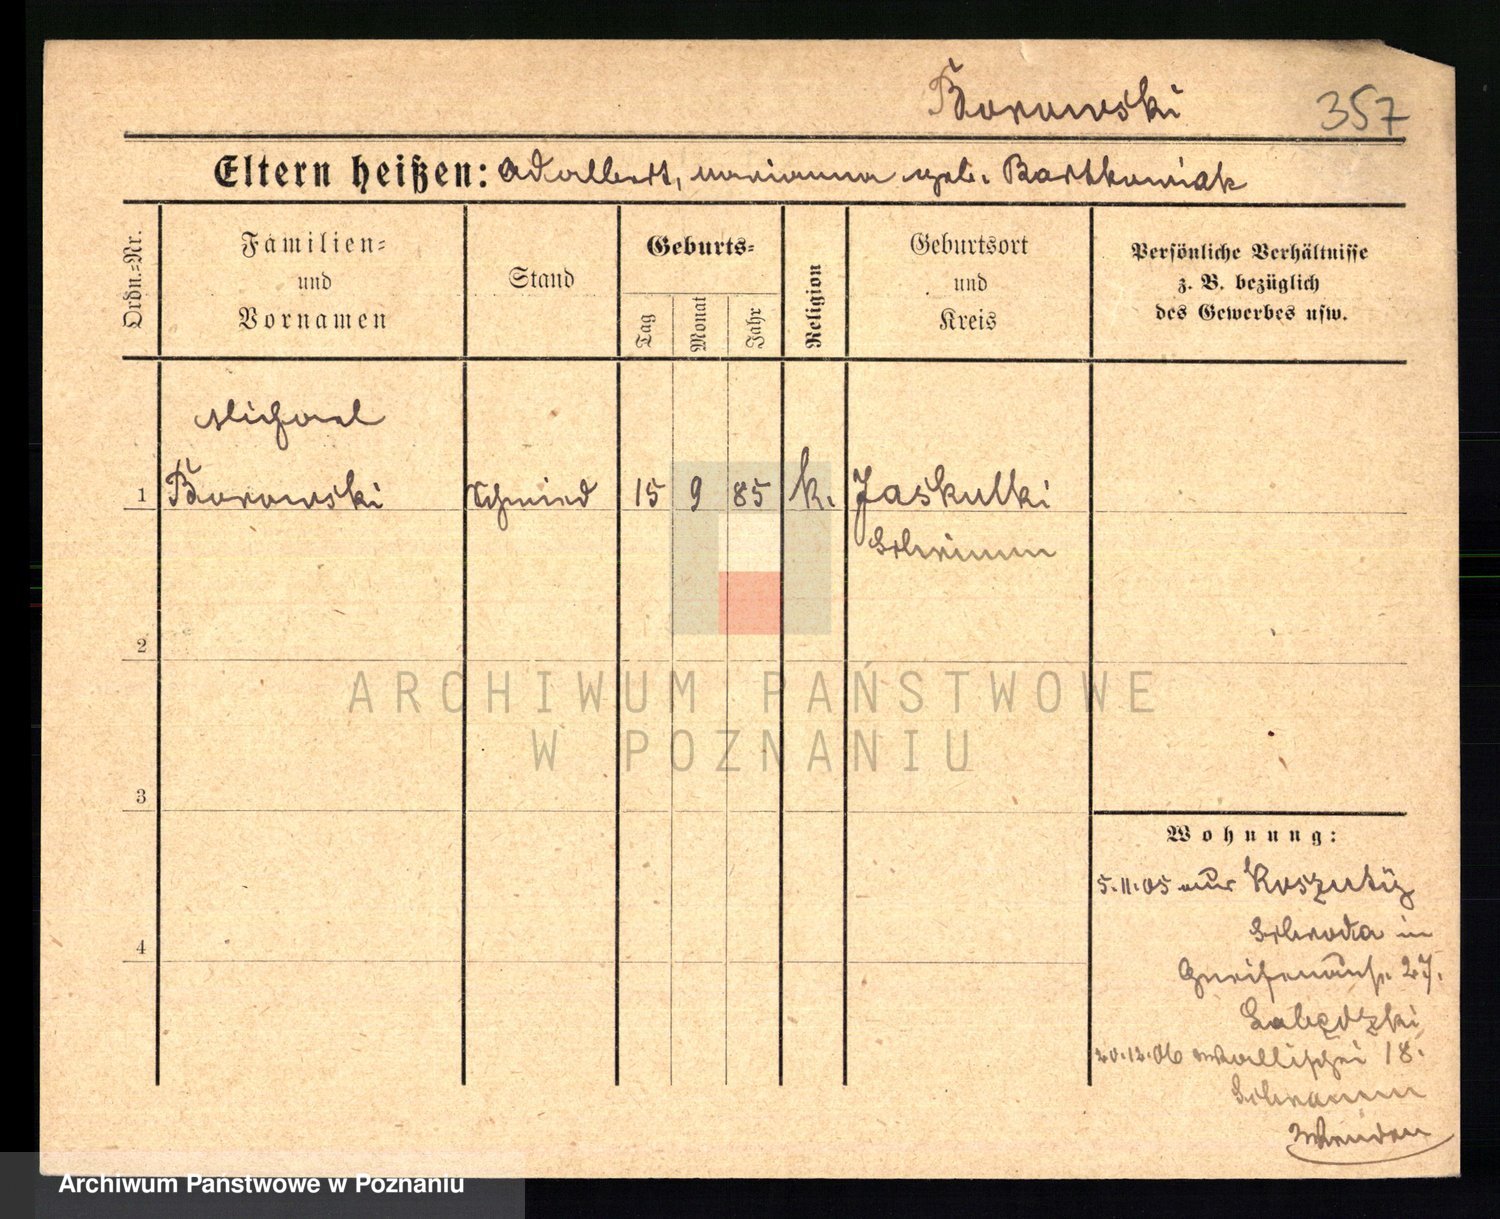 Borowski 357
Eltern heißen: Adalbert, Marianna geb. Bartkowiak
Ordn.=Nr.
Familien=
und
Vornamen
Stand
Geburts=
Tag
Monat
Jahr
Religion
Geburtsort
und
Kreis
Persönliche Verhältnisse
z. B. bezüglich
des Gewerbes usw.
Michael
1 Borowski Schmied 15 9 85 k. Jaskulki
Schrimm
2
ARCHIWUM PAŃSTWOWE
W POZNANIU
3
Wohnung:
5.11.05 aus
Schroda in
27.
4
Łabędzki
20.12.06 Wallischei 18.
Schramm
Wenden
Archiwum Państwowe w Poznaniu